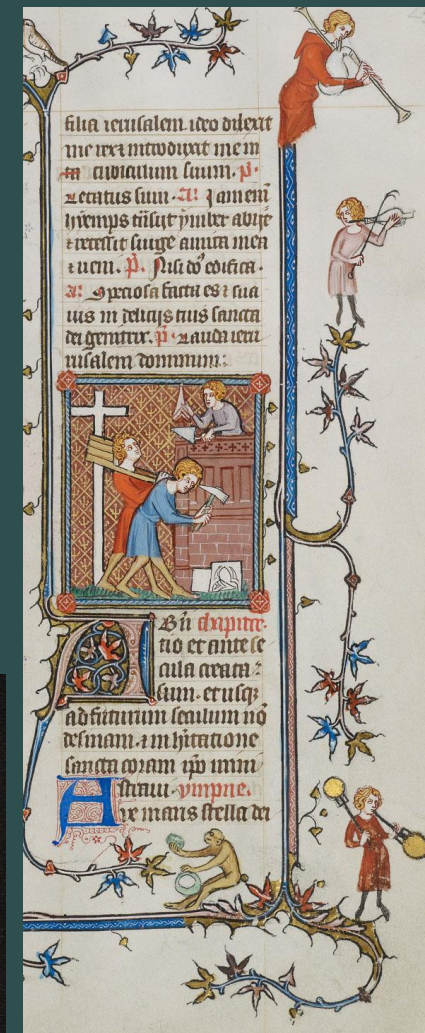 filia ierusalem ideo dilexit
me rex et introduxit me in
cubiculum suum. p̄.
letatus sum. A: Jam enim
hyemps transiit ymber abiit
et recessit surge amica mea
et veni. p̄. Nisi dns edifica.
A: Speciosa facta es et sua
uis in deliciis tuis sancta
dei genitrix. p̄. Lauda ieru
rusalem dominum:
AB ini chapitre.
tio et ante se
cula creata
sum. et usq3
ad futurum seculum nō
desinam. et in hitatione
sancta coram ipō mini
straui. ympne.
Aue maris stella dei